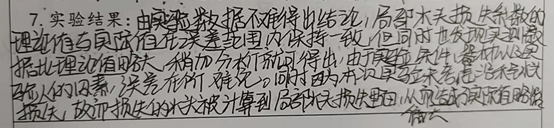 7. 实验结果：由实验数据不难得出结论，局部水头损失系数的
理论值与实际值在误差范围内保持一致，但同时也发现实测数
据比理论值略大，稍加分析亦可得出，由于实验条件、器材以及实
验人的因素，误差在所难免。同时因为本次实验未考虑沿程水头
损失，故而损失的水头被计算到局部水头损失里面，从而造成实际值略微
偏大